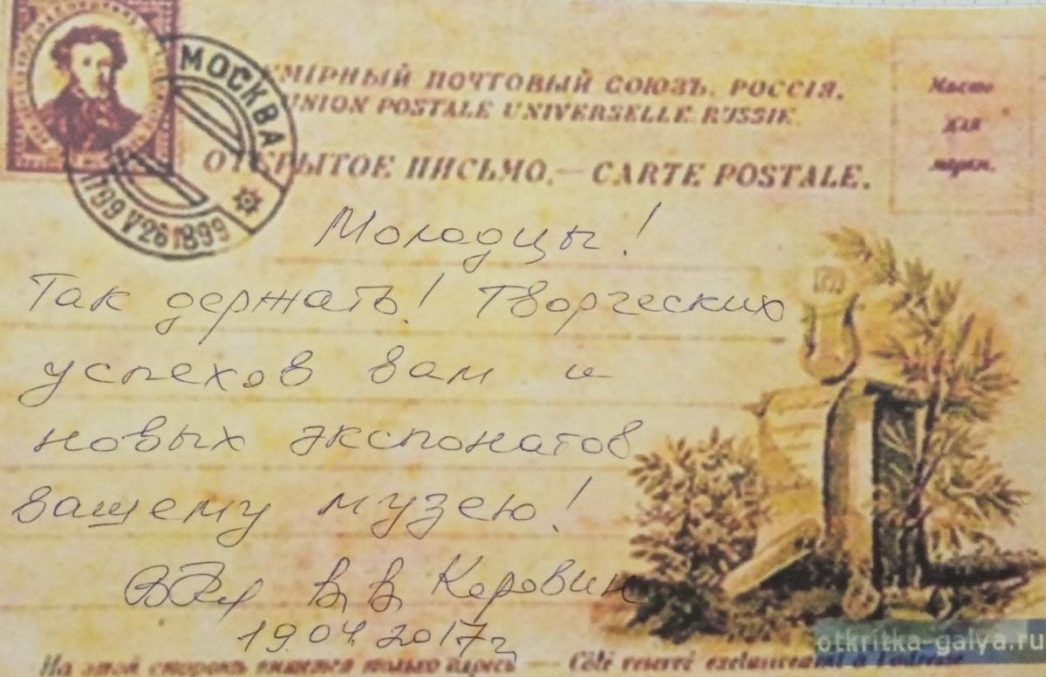 МОСКВА
1799 V 26 1899
МІРНЫЙ ПОЧТОВЫЙ СОЮЗЪ. РОССІЯ.
UNION POSTALE UNIVERSELLE. RUSSIE.
ОТКРЫТОЕ ПИСЬМО. — CARTE POSTALE.
Место
для
марки.
Молодцы!
Так держать! Творческих
успехов вам и
новых экспонатов
вашему музею!
В.В.
19.04.2017г
На этой сторонѣ пишется только адресъ — Côté réservé exclusivement à l'adresse
otkritka-galya.ru